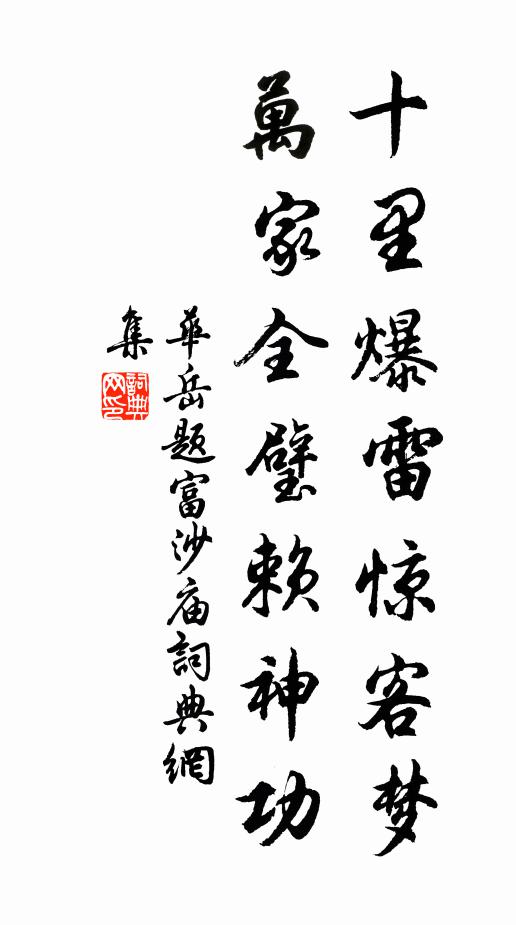 十里爆雷惊客梦
萬家全璧赖神功
華岳题富沙庙詞典網
集
詞典
网印